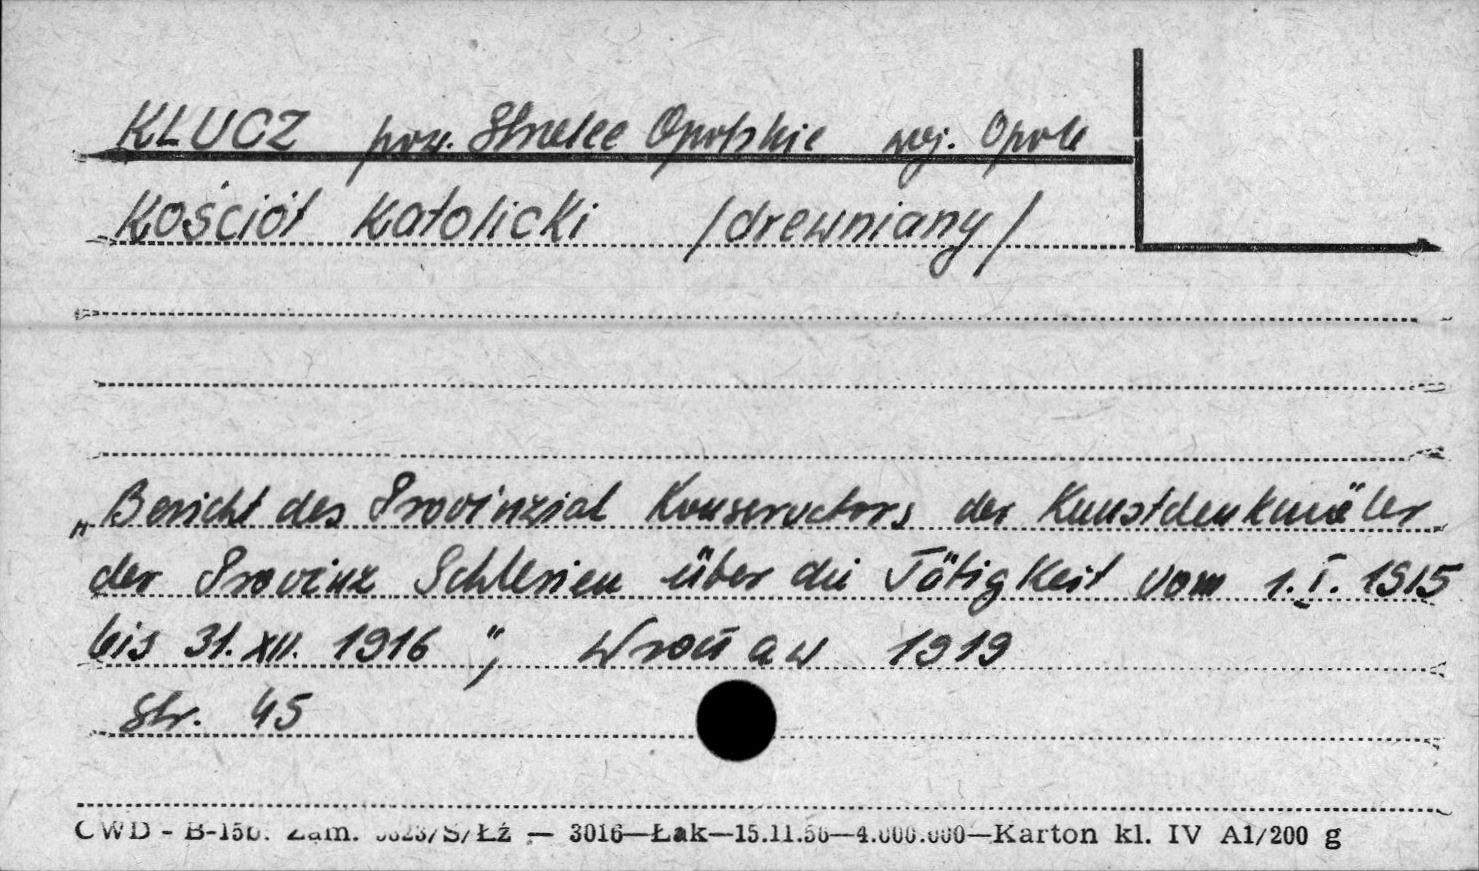 KLUCZ pow. Strzelce Opolskie woj. Opole
Kościół Katolicki /drewniany/
„Bericht des Provinzial Konservators der Kunstdenkmäler
der Provinz Schlesien über die Tätigkeit vom 1.I. 1915
bis 31.XII. 1916", Wrocław 1919
Str. 45
CWD - B-15b. Zam. /S/Łż — 3016—Łak—15.11.56—4.000.000—Karton kl. IV A1/200 g